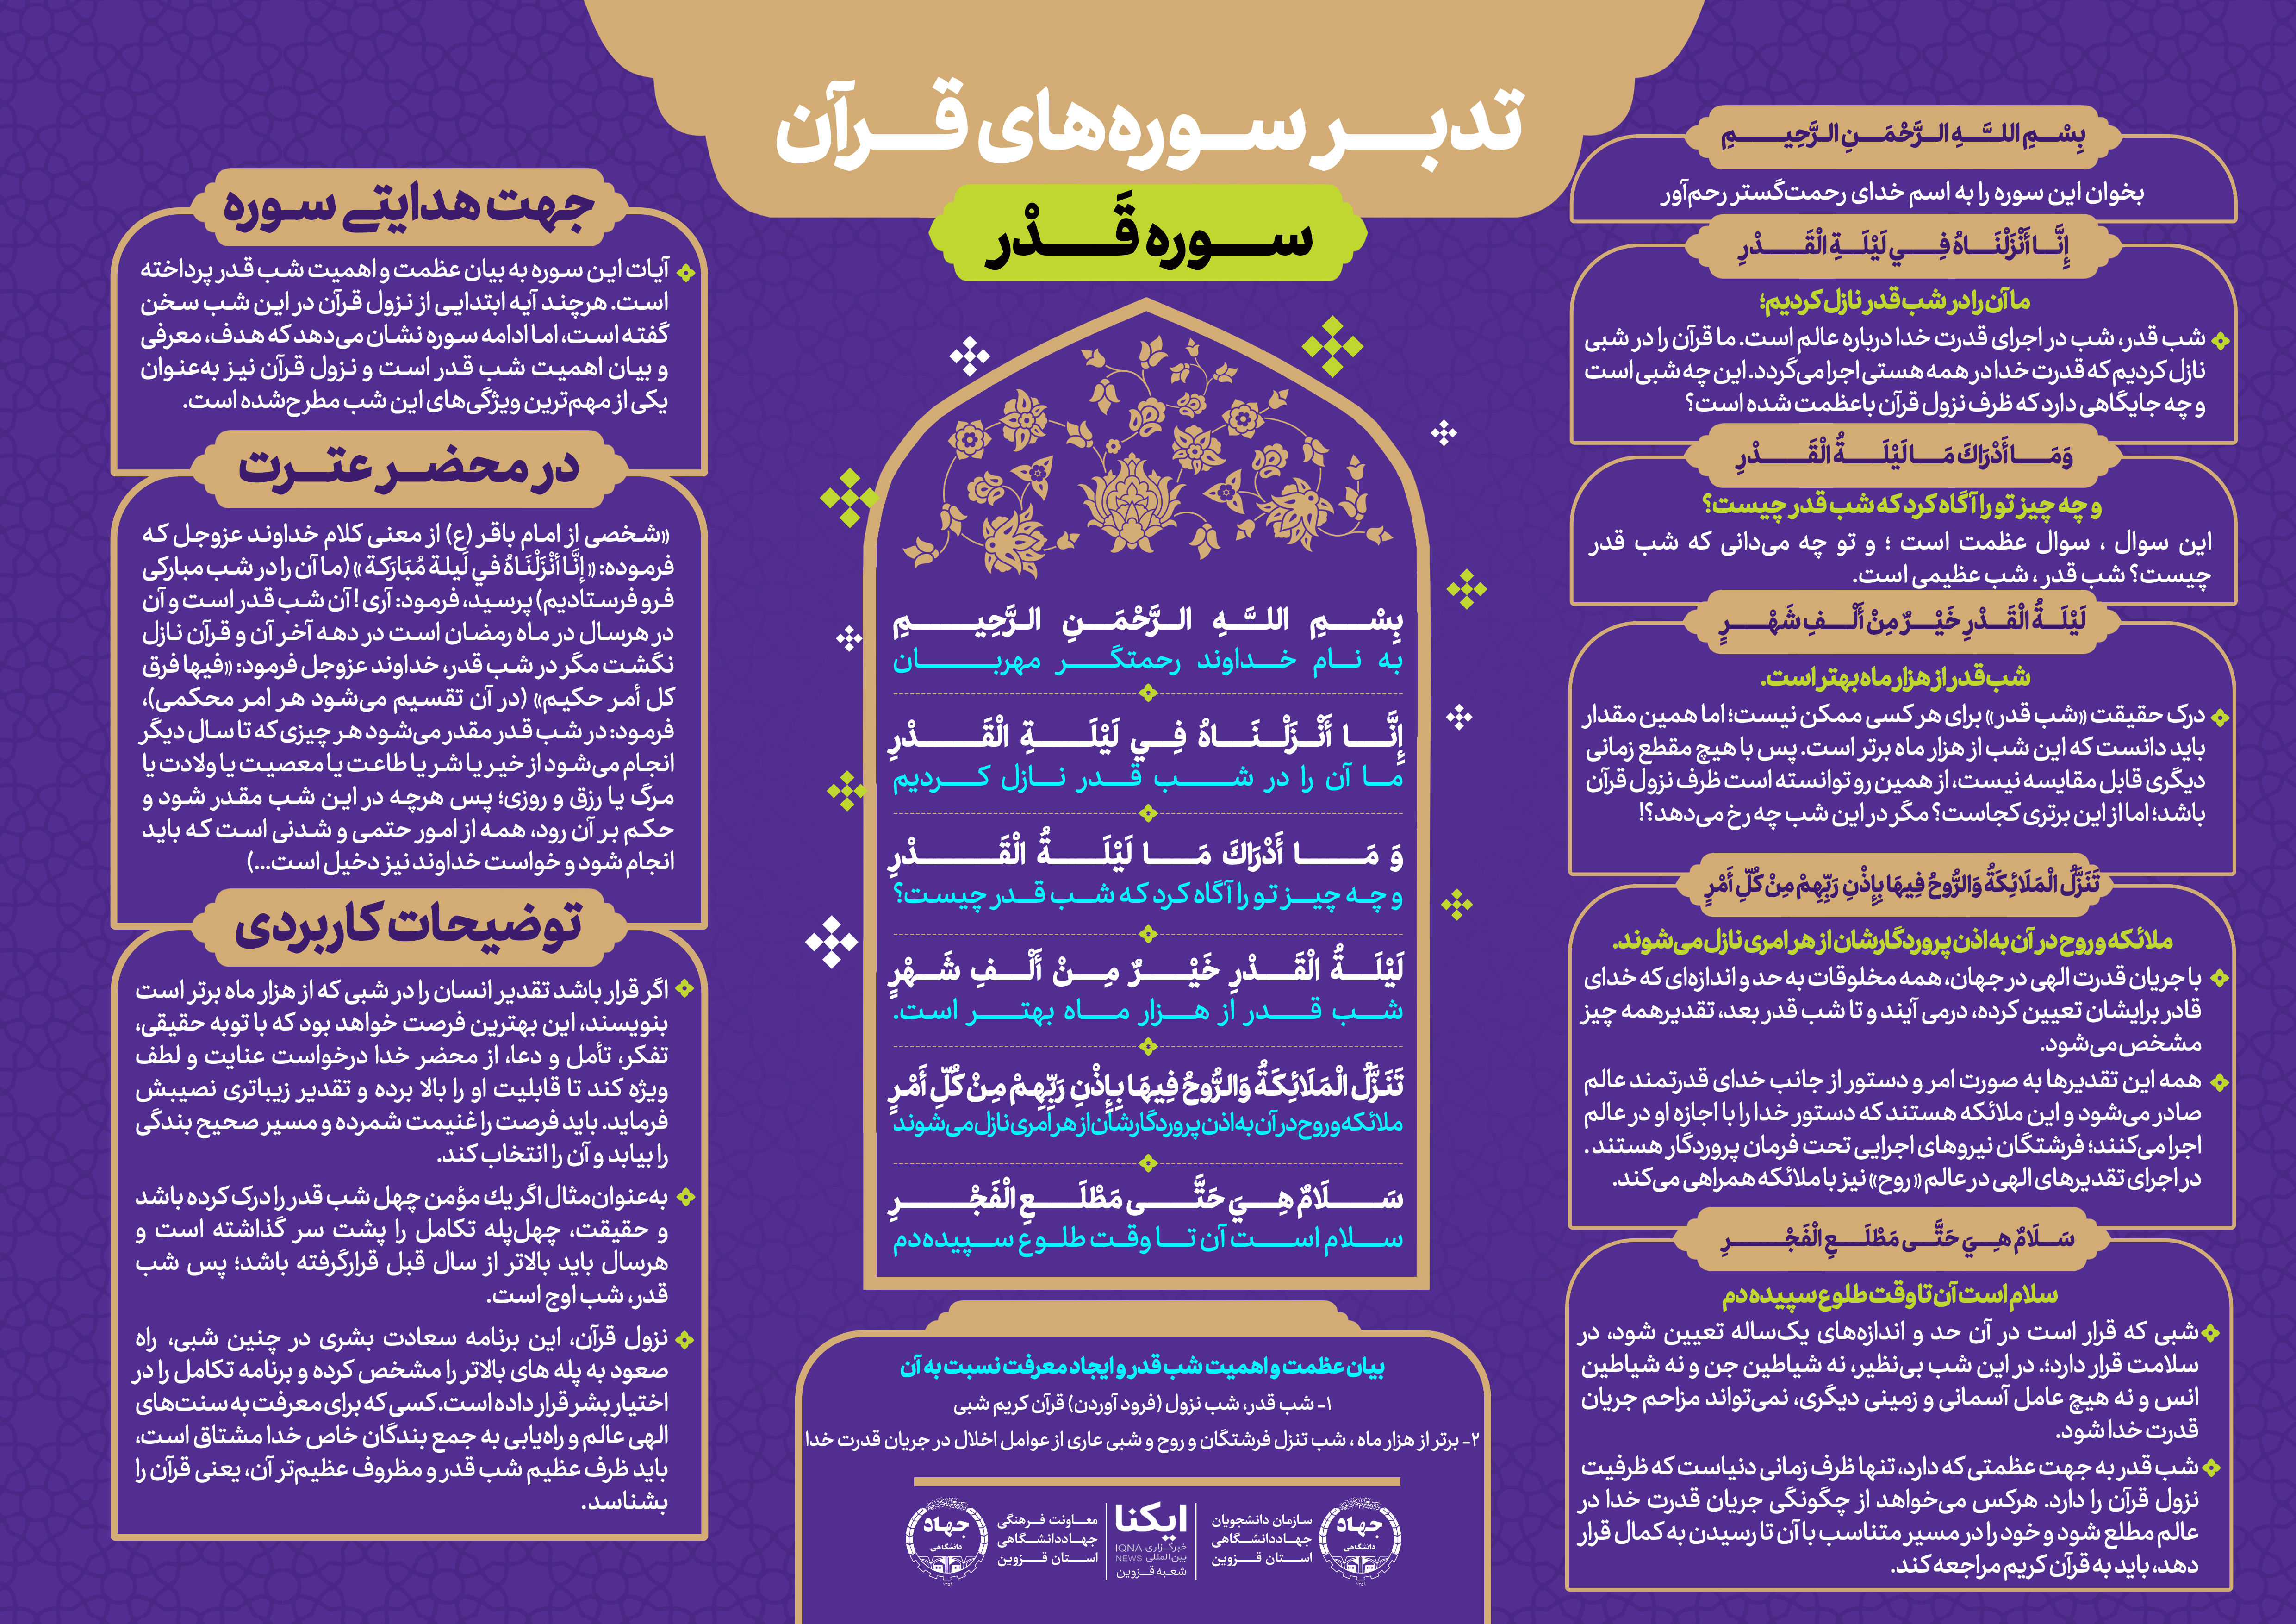 تدبر سوره‌های قرآن
سوره قَدْر
بِسْمِ اللَّهِ الرَّحْمَنِ الرَّحِيمِ
بخوان این سوره را به اسم خدای رحمت‌گستر رحم‌آور
إِنَّا أَنْزَلْنَاهُ فِي لَيْلَةِ الْقَدْرِ
ما آن را در شب قدر نازل کردیم؛
شب قدر، شب در اجرای قدرت خدا درباره عالم است. ما قرآن را در شبی
نازل کردیم که قدرت خدا در همه هستی اجرا می‌گردد. این چه شبی است
و چه جایگاهی دارد که ظرف نزول قرآن باعظمت شده است؟
وَمَا أَدْرَاكَ مَا لَيْلَةُ الْقَدْرِ
و چه چیز تو را آگاه کرد که شب قدر چیست؟
این سوال ، سوال عظمت است ؛ و تو چه می‌دانی که شب قدر
چیست؟ شب قدر ، شب عظیمی است.
لَيْلَةُ الْقَدْرِ خَيْرٌ مِنْ أَلْفِ شَهْرٍ
شب قدر از هزار ماه بهتر است.
درک حقیقت «شب قدر» برای هر کسی ممکن نیست؛ اما همین مقدار
باید دانست که این شب از هزار ماه برتر است. پس با هیچ مقطع زمانی
دیگری قابل مقایسه نیست، از همین رو توانسته است ظرف نزول قرآن
باشد؛ اما از این برتری کجاست؟ مگر در این شب چه رخ می‌دهد؟!
تَنَزَّلُ الْمَلَائِكَةُ وَالرُّوحُ فِيهَا بِإِذْنِ رَبِّهِمْ مِنْ كُلِّ أَمْرٍ
ملائکه و روح در آن به اذن پروردگارشان از هر امری نازل می‌شوند.
با جریان قدرت الهی در جهان، همه مخلوقات به حد و اندازه‌ای که خدای
قادر برایشان تعیین کرده، درمی آیند و تا شب قدر بعد، تقدیرهمه چیز
مشخص می‌شود.
همه این تقدیرها به صورت امر و دستور از جانب خدای قدرتمند عالم
صادر می‌شود و این ملائکه هستند که دستور خدا را با اجازه او در عالم
اجرا می‌کنند؛ فرشتگان نیروهای اجرایی تحت فرمان پروردگار هستند .
در اجرای تقدیرهای الهی در عالم «روح» نیز با ملائکه همراهی می‌کند.
سَلَامٌ هِيَ حَتَّى مَطْلَعِ الْفَجْرِ
سلام است آن تا وقت طلوع سپیده دم
شبی که قرار است در آن حد و اندازه‌های یک‌ساله تعیین شود، در
سلامت قرار دارد؛. در این شب بی‌نظیر، نه شیاطین جن و نه شیاطین
انس و نه هیچ عامل آسمانی و زمینی دیگری، نمی‌تواند مزاحم جریان
قدرت خدا شود.
شب قدر به جهت عظمتی که دارد، تنها ظرف زمانی دنیاست که ظرفیت
نزول قرآن را دارد. هرکس می‌خواهد از چگونگی جریان قدرت خدا در
عالم مطلع شود و خود را در مسیر متناسب با آن تا رسیدن به کمال قرار
دهد، باید به قرآن کریم مراجعه کند.
بِسْمِ اللَّهِ الرَّحْمَنِ الرَّحِيمِ
به نام خداوند رحمتگر مهربان
إِنَّا أَنْزَلْنَاهُ فِي لَيْلَةِ الْقَدْرِ
ما آن را در شب قدر نازل کردیم
وَ مَا أَدْرَاكَ مَا لَيْلَةُ الْقَدْرِ
و چه چیز تو را آگاه کرد که شب قدر چیست؟
لَيْلَةُ الْقَدْرِ خَيْرٌ مِنْ أَلْفِ شَهْرٍ
شب قدر از هزار ماه بهتر است.
تَنَزَّلُ الْمَلَائِكَةُ وَالرُّوحُ فِيهَا بِإِذْنِ رَبِّهِمْ مِنْ كُلِّ أَمْرٍ
ملائکه و روح در آن به اذن پروردگارشان از هر امری نازل می‌شوند
سَلَامٌ هِيَ حَتَّى مَطْلَعِ الْفَجْرِ
سلام است آن تا وقت طلوع سپیده دم
بیان عظمت و اهمیت شب قدر و ایجاد معرفت نسبت به آن
۱- شب قدر، شب نزول (فرود آوردن) قرآن کریم شبی
۲- برتر از هزار ماه ، شب تنزل فرشتگان و روح و شبی عاری از عوامل اخلال در جریان قدرت خدا
جهاد
دانشگاهی
۱۳۵۹
سازمان دانشجویان
جهاددانشگاهی
استان قزوین
ایکنا
خبرگزاری IQNA
بین‌المللی NEWS
شعبه قزوین
معاونت فرهنگی
جهاددانشگاهی
استان قزوین
جهاد
دانشگاهی
۱۳۵۹
جهت هدایتی سوره
آیات این سوره به بیان عظمت و اهمیت شب قدر پرداخته
است. هرچند آیه ابتدایی از نزول قرآن در این شب سخن
گفته است، اما ادامه سوره نشان می‌دهد که هدف، معرفی
و بیان اهمیت شب قدر است و نزول قرآن نیز به‌عنوان
یکی از مهم‌ترین ویژگی‌های این شب مطرح‌شده است.
در محضر عترت
«شخصی از امام باقر (ع) از معنی کلام خداوند عزوجل که
فرموده: « إِنَّا أَنْزَلْنَاهُ في لَیلة مُبَارَكة » (ما آن را در شب مبارکی
فرو فرستادیم) پرسید، فرمود: آری! آن شب قدر است و آن
در هرسال در ماه رمضان است در دهه آخر آن و قرآن نازل
نگشت مگر در شب قدر، خداوند عزوجل فرمود: «فیها فرق
کل أمر حکیم» (در آن تقسیم می‌شود هر امر محکمی)،
فرمود: در شب قدر مقدر می‌شود هر چیزی که تا سال دیگر
انجام می‌شود از خیر یا شر یا طاعت یا معصیت یا ولادت یا
مرگ یا رزق و روزی؛ پس هرچه در این شب مقدر شود و
حکم بر آن رود، همه از امور حتمی و شدنی است که باید
انجام شود و خواست خداوند نیز دخیل است...)
توضیحات کاربردی
اگر قرار باشد تقدیر انسان را در شبی که از هزار ماه برتر است
بنویسند، این بهترین فرصت خواهد بود که با توبه حقیقی،
تفکر، تأمل و دعا، از محضر خدا درخواست عنایت و لطف
ویژه کند تا قابلیت او را بالا برده و تقدیر زیباتری نصیبش
فرماید. باید فرصت را غنیمت شمرده و مسیر صحیح بندگی
را بیابد و آن را انتخاب کند.
به‌عنوان‌مثال اگر یك مؤمن چهل شب قدر را درک کرده باشد
و حقیقت، چهل‌پله تکامل را پشت سر گذاشته است و
هرسال باید بالاتر از سال قبل قرارگرفته باشد؛ پس شب
قدر، شب اوج است.
نزول قرآن، این برنامه سعادت بشری در چنین شبی، راه
صعود به پله های بالاتر را مشخص کرده و برنامه تکامل را در
اختیار بشر قرار داده است. کسی که برای معرفت به سنت‌های
الهی عالم و راه‌یابی به جمع بندگان خاص خدا مشتاق است،
باید ظرف عظیم شب قدر و مظروف عظیم‌تر آن، یعنی قرآن را
بشناسد.